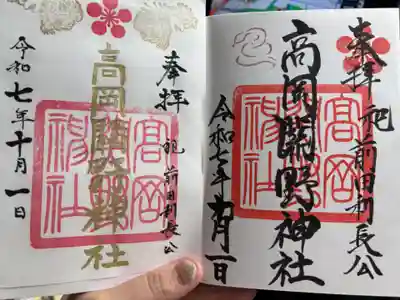 奉拝
祀 前田利長公
高岡關野神社
令和七年十月一日
高岡關野神社
奉拝
祀 前田利長公
高岡關野神社
令和七年十月一日